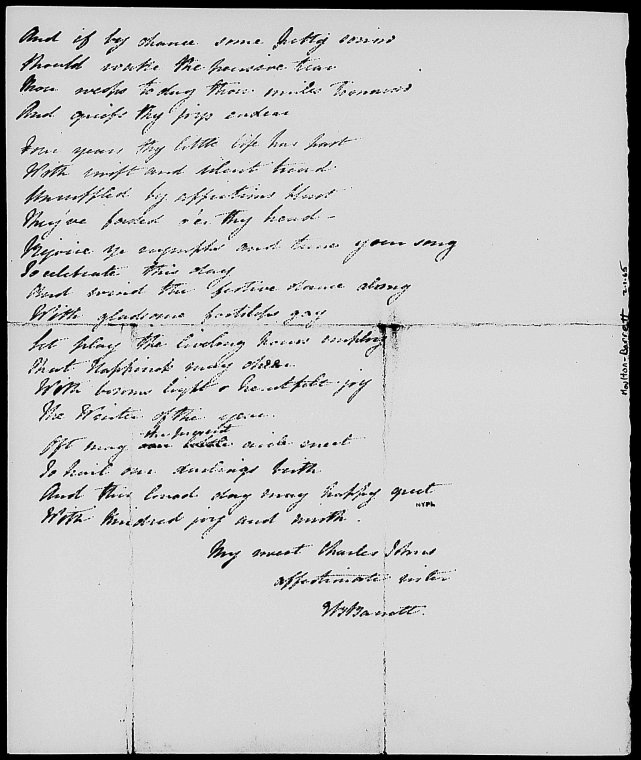 And if by chance some petty sorrow
Should wake the pensive tear
Thou weeps to day thou smiles Tomorrow
And quiets thy joys endear
Four years thy little life has past
With swift and silent tread
Unruffled by afflictions blast
They've passed o'er thy head –
Rejoice ye nymphs and tune your song
To celebrate this day
And wend the festive dance along
With gladsome footsteps gay
Let play the livelong hours employ
That Happiness may cheer
With bosoms light & heartfelt joy
The Winter of the year.
the present
Oft may our little circle meet
To hail our darlings birth
And this loved day may happy greet
With kindred joy and mirth.
NYPL
My sweet Charles Johns
affectionate sister
EBBarrett.
Moulton-Barrett 2-1-65